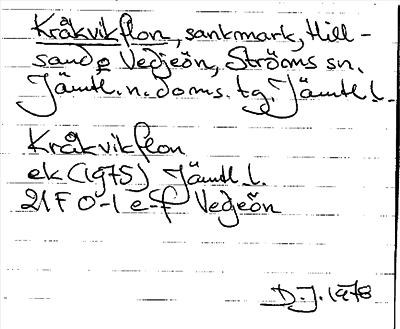 Kråkvikflon, sankmark, Hill-
sand o Vedjeön, Ströms sn.
Jämtl. n. doms. tg. Jämtl. l.
Kråkvikflon
ek (1975) Jämtl. l.
21F 0-1 e-f Vedjeön
D.J. 1978